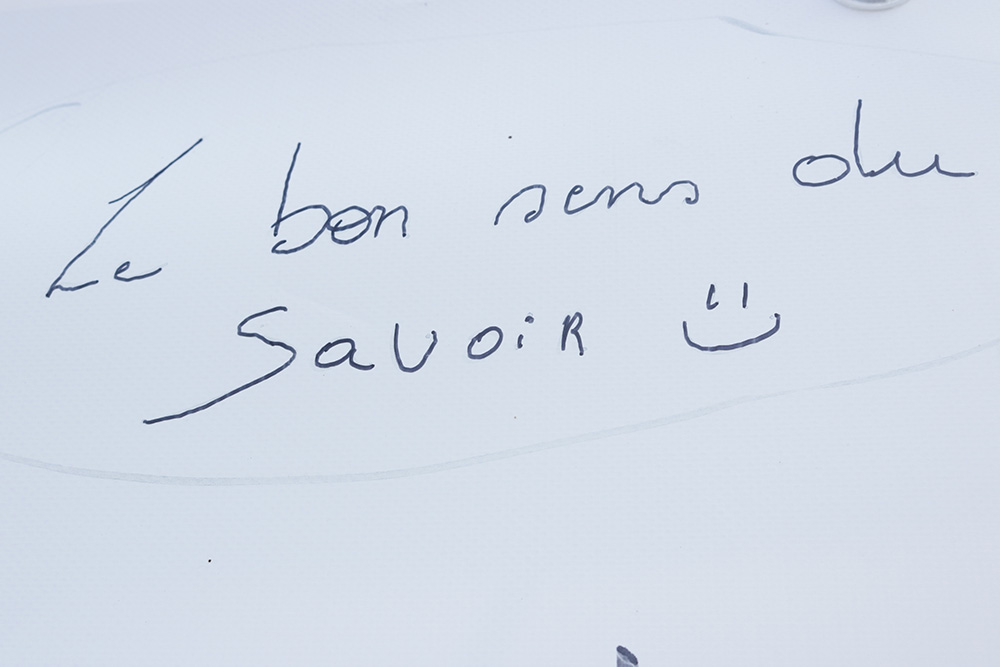 Le bon sens du
Savoir